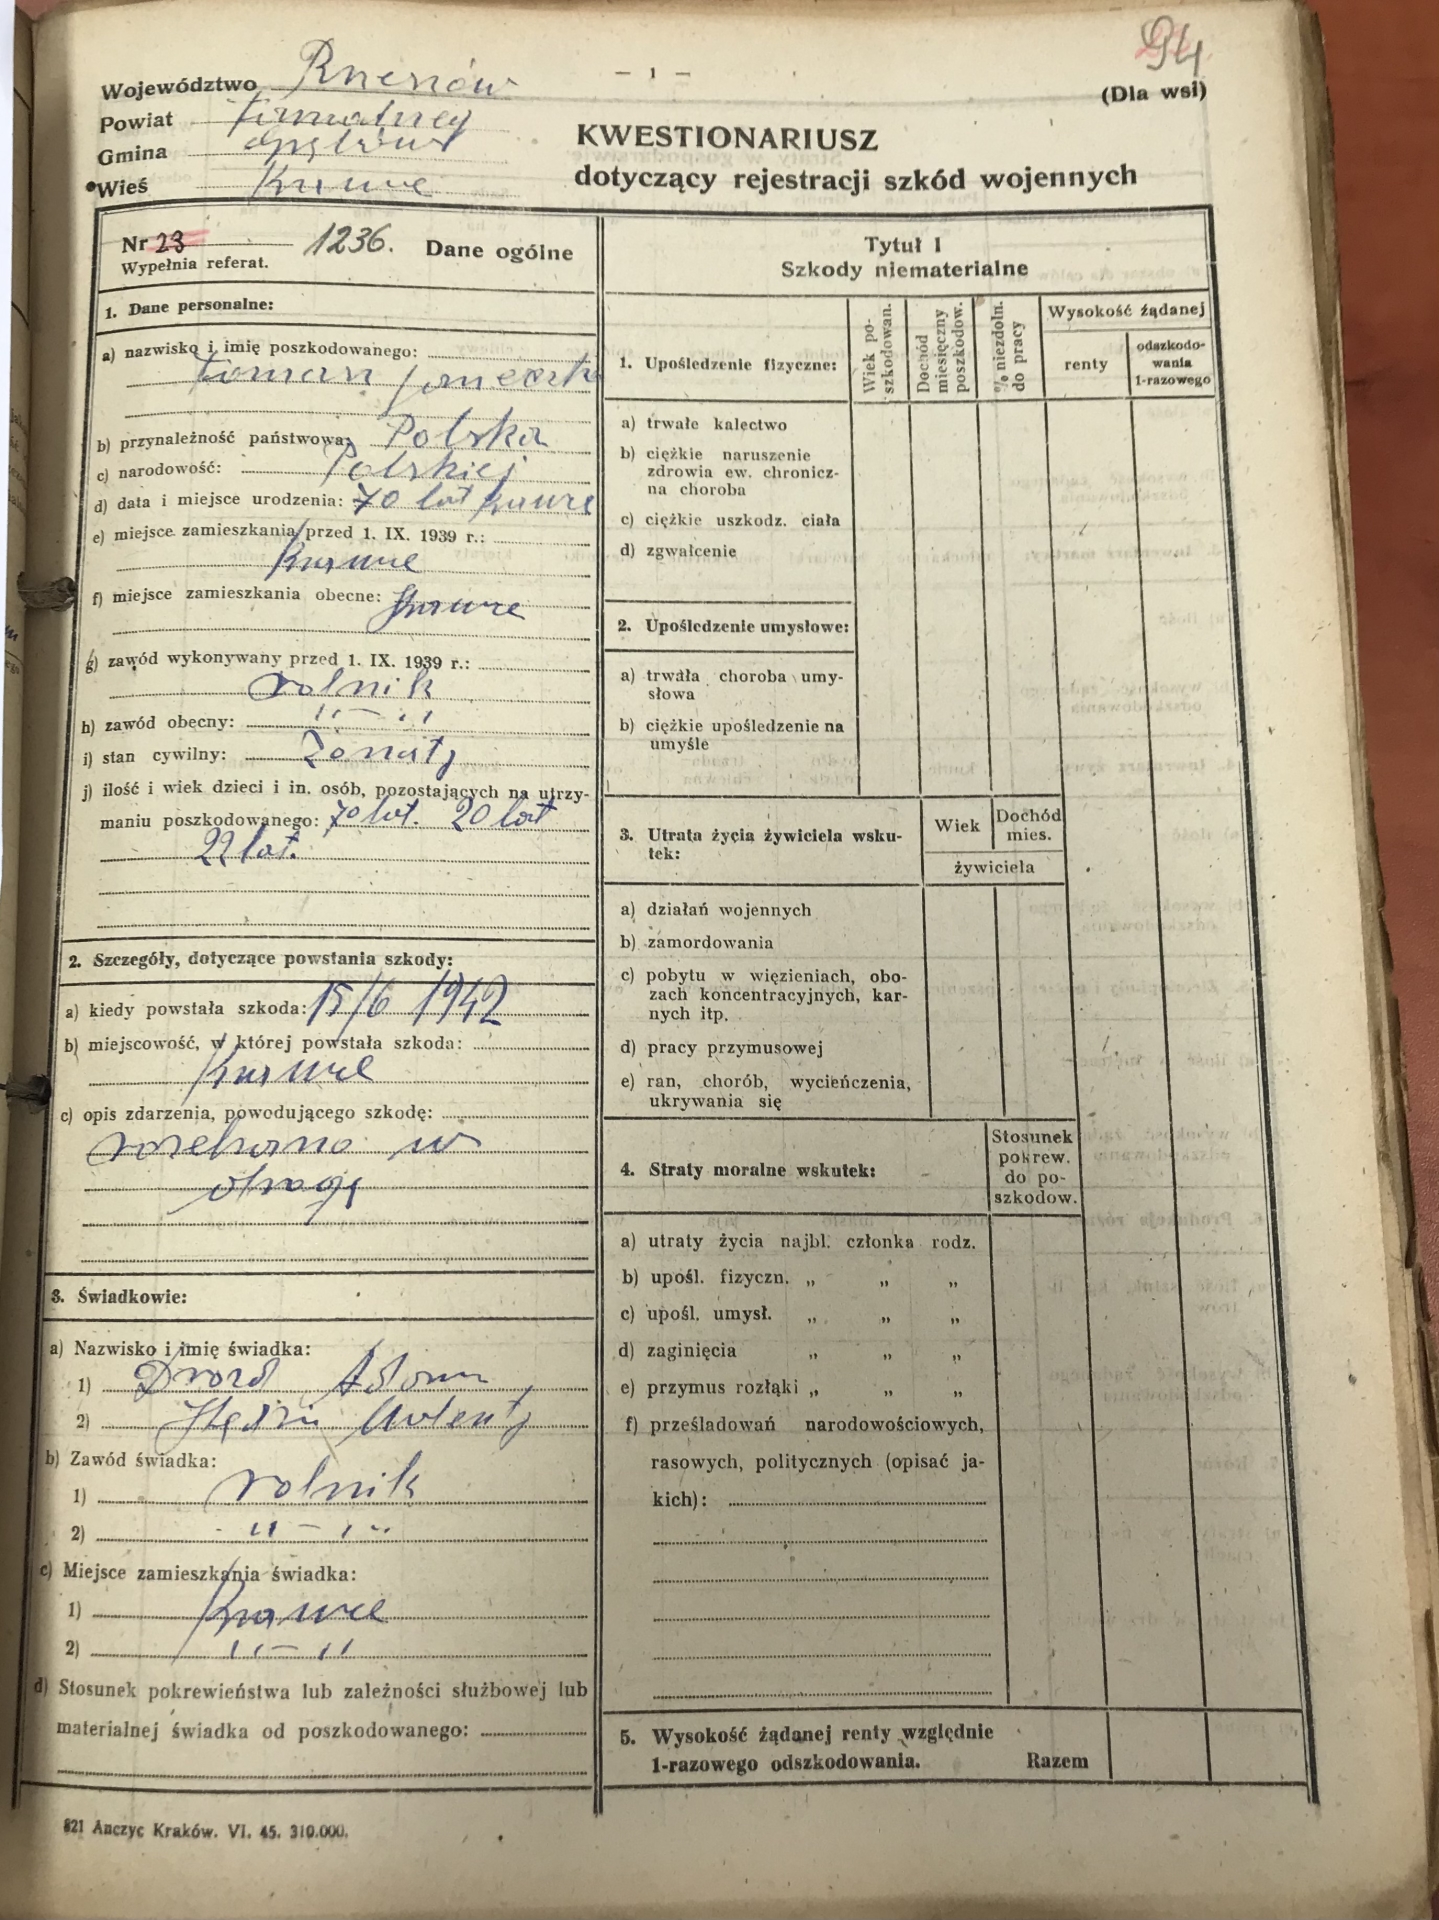 94
— 1 —
(Dla wsi)
Województwo Rzeszów
Powiat
Gmina
Wieś Krawce
KWESTIONARIUSZ
dotyczący rejestracji szkód wojennych
Nr 23 1236. Dane ogólne
Wypełnia referat.
1. Dane personalne:
a) nazwisko i imię poszkodowanego:
Tomasz
b) przynależność państwowa: Polska
c) narodowość: Polskiej
d) data i miejsce urodzenia: 70 lat Krawce
e) miejsce zamieszkania przed 1. IX. 1939 r.:
Krawce
f) miejsce zamieszkania obecne: Krawce
g) zawód wykonywany przed 1. IX. 1939 r.:
rolnik
h) zawód obecny: "—"
i) stan cywilny: Żonaty
j) ilość i wiek dzieci i in. osób, pozostających na utrzy-
maniu poszkodowanego: 70 lat. 20 lat
22 lat.
2. Szczegóły, dotyczące powstania szkody:
a) kiedy powstała szkoda: 15/6 1942
b) miejscowość, w której powstała szkoda:
Krawce
c) opis zdarzenia, powodującego szkodę:
w
3. Świadkowie:
a) Nazwisko i imię świadka:
1) Drozd Adam
2)
b) Zawód świadka:
1) rolnik
2) "—"
c) Miejsce zamieszkania świadka:
1) Krawce
2) "—"
d) Stosunek pokrewieństwa lub zależności służbowej lub
materialnej świadka od poszkodowanego:
821 Anczyc Kraków. VI. 45. 310.000.
Tytuł I
Szkody niematerialne
1. Upośledzenie fizyczne:
Wiek po-
szkodowan.
Dochód
miesięczny
poszkodow.
% niezdoln.
do pracy
Wysokość żądanej
renty
odszkodo-
wania
1-razowego
a) trwałe kalectwo
b) ciężkie naruszenie
zdrowia ew. chronicz-
na choroba
c) ciężkie uszkodz. ciała
d) zgwałcenie
2. Upośledzenie umysłowe:
a) trwała choroba umy-
słowa
b) ciężkie upośledzenie na
umyśle
3. Utrata życia żywiciela wsku-
tek:
Wiek
Dochód
mies.
żywiciela
a) działań wojennych
b) zamordowania
c) pobytu w więzieniach, obo-
zach koncentracyjnych, kar-
nych itp.
d) pracy przymusowej
e) ran, chorób, wycieńczenia,
ukrywania się
4. Straty moralne wskutek:
Stosunek
pokrew.
do po-
szkodow.
a) utraty życia najbl. członka rodz.
b) upośl. fizyczn. „ „ „
c) upośl. umysł. „ „ „
d) zaginięcia „ „ „
e) przymus rozłąki „ „ „
f) prześladowań narodowościowych,
rasowych, politycznych (opisać ja-
kich):
5. Wysokość żądanej renty względnie
1-razowego odszkodowania. Razem